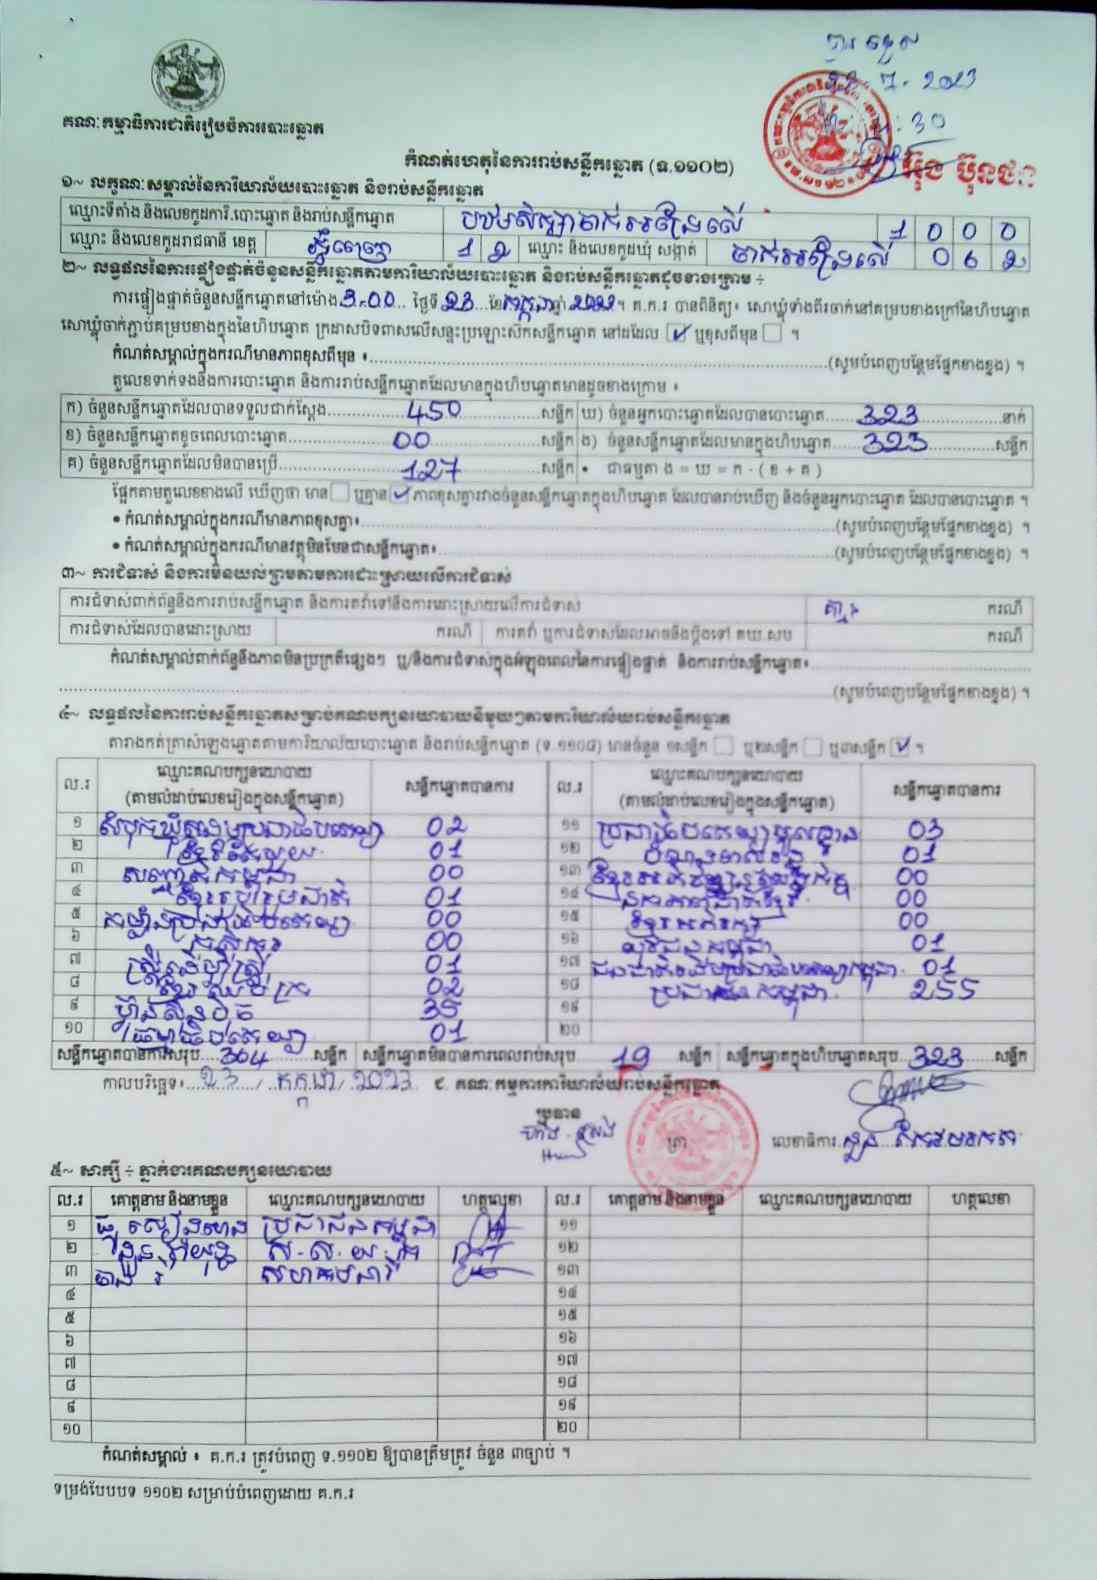 ២៣.៧.2023
គណៈកម្មាធិការជាតិរៀបចំការបោះឆ្នោត
កំណត់ហេតុនៃការរាប់សន្លឹកឆ្នោត (ទ.១១០២)
១~ លក្ខណៈសម្គាល់នៃការិយាល័យបោះឆ្នោត និងរាប់សន្លឹកឆ្នោត
ឈ្មោះទីតាំង និងលេខកូដការិ.បោះឆ្នោត និងរាប់សន្លឹកឆ្នោត បឋមសិក្សាចាក់អង្រែលើ 1000
ឈ្មោះ និងលេខកូដរាជធានី ខេត្ត ភ្នំពេញ 12 ឈ្មោះ និងលេខកូដឃុំ សង្កាត់ ចាក់អង្រែលើ 062
២~ លទ្ធផលនៃការផ្ទៀងផ្ទាត់ចំនួនសន្លឹកឆ្នោតតាមការិយាល័យបោះឆ្នោត និងរាប់សន្លឹកឆ្នោតដូចខាងក្រោម ÷
ការផ្ទៀងផ្ទាត់ចំនួនសន្លឹកឆ្នោតនៅម៉ោង 3:00 ថ្ងៃទី 23 ខែ កក្កដា ឆ្នាំ 2023 ។ គ.ក.រ បានពិនិត្យ៖ សោឃ្លុំទាំងពីរចាក់នៅគម្របខាងក្រៅនៃហិបឆ្នោត
សោឃ្លុំចាក់ភ្ជាប់គម្របខាងក្នុងនៃហិបឆ្នោត ក្រដាសបិទពាសលើសន្ទះប្រឡោះសឹកសន្លឹកឆ្នោត នៅដដែល ☑ ឬខុសពីមុន ☐ ។
កំណត់សម្គាល់ក្នុងករណីមានភាពខុសពីមុន ៖ (សូមបំពេញបន្ថែមផ្នែកខាងខ្នង) ។
តួលេខទាក់ទងនឹងការបោះឆ្នោត និងការរាប់សន្លឹកឆ្នោតដែលមានក្នុងហិបឆ្នោតមានដូចខាងក្រោម ៖
ក) ចំនួនសន្លឹកឆ្នោតដែលបានទទួលជាក់ស្តែង 450 សន្លឹក ឃ) ចំនួនអ្នកបោះឆ្នោតដែលបានបោះឆ្នោត 323 នាក់
ខ) ចំនួនសន្លឹកឆ្នោតខូចពេលបោះឆ្នោត 00 សន្លឹក ង) ចំនួនសន្លឹកឆ្នោតដែលមានក្នុងហិបឆ្នោត 323 សន្លឹក
គ) ចំនួនសន្លឹកឆ្នោតដែលមិនបានប្រើ 127 សន្លឹក • ជាធម្មតា ង = ឃ = ក - ( ខ + គ )
ផ្អែកតាមតួលេខខាងលើ ឃើញថា មាន ☐ ឬគ្មាន ☑ ភាពខុសគ្នារវាងចំនួនសន្លឹកឆ្នោតក្នុងហិបឆ្នោត ដែលបានរាប់ឃើញ និងចំនួនអ្នកបោះឆ្នោត ដែលបានបោះឆ្នោត ។
• កំណត់សម្គាល់ក្នុងករណីមានភាពខុសគ្នា៖ (សូមបំពេញបន្ថែមផ្នែកខាងខ្នង) ។
• កំណត់សម្គាល់ក្នុងករណីមានវត្ថុមិនមែនជាសន្លឹកឆ្នោត៖ (សូមបំពេញបន្ថែមផ្នែកខាងខ្នង) ។
៣~ ការជំទាស់ និងការមិនយល់ព្រមតាមការដោះស្រាយលើការជំទាស់
ការជំទាស់ពាក់ព័ន្ធនឹងការរាប់សន្លឹកឆ្នោត និងការតវ៉ាទៅនឹងការដោះស្រាយលើការជំទាស់ គ្មាន ករណី
ការជំទាស់ដែលបានដោះស្រាយ ករណី ការតវ៉ា ឬការជំទាស់ដែលអាចនឹងប្តឹងទៅ គឃ.សប ករណី
កំណត់សម្គាល់ពាក់ព័ន្ធនឹងភាពមិនប្រក្រតីផ្សេងៗ ឬ/និងការជំទាស់ក្នុងអំឡុងពេលនៃការផ្ទៀងផ្ទាត់ និងការរាប់សន្លឹកឆ្នោត៖
(សូមបំពេញបន្ថែមផ្នែកខាងខ្នង) ។
៤~ លទ្ធផលនៃការរាប់សន្លឹកឆ្នោតសម្រាប់គណបក្សនយោបាយនីមួយៗតាមការិយាល័យរាប់សន្លឹកឆ្នោត
តារាងកត់ត្រាសំឡេងឆ្នោតតាមការិយាល័យបោះឆ្នោត និងរាប់សន្លឹកឆ្នោត (ទ.១១០៨) មានចំនួន ១សន្លឹក ☐ ឬ២សន្លឹក ☐ ឬ៣សន្លឹក ☑ ។
ល.រ ឈ្មោះគណបក្សនយោបាយ (តាមលំដាប់លេខរៀងក្នុងសន្លឹកឆ្នោត) សន្លឹកឆ្នោតបានការ ល.រ ឈ្មោះគណបក្សនយោបាយ (តាមលំដាប់លេខរៀងក្នុងសន្លឹកឆ្នោត) សន្លឹកឆ្នោតបានការ
១ សំបុកឃ្មុំសង្គមប្រជាធិបតេយ្យ 02 ១១ ប្រជាធិបតេយ្យមូលដ្ឋាន 03
២ ខ្មែរតែមួយ 01 ១២ 01
៣ សញ្ជាតិកម្ពុជា 00 ១៣ 00
៤ ខ្មែររួបរួមជាតិ 01 ១៤ 00
៥ កម្លាំងប្រជាធិបតេយ្យ 00 ១៥ ខ្មែរអភិរក្ស 00
៦ កសិករ 00 ១៦ យុវជនកម្ពុជា 01
៧ ស្ត្រីដើម្បីស្ត្រី 01 ១៧ ជនជាតិដើមប្រជាធិបតេយ្យកម្ពុជា 01
៨ ខ្មែរឈប់ក្រ 02 ១៨ ប្រជាជនកម្ពុជា 255
៩ ហ៊្វុនស៊ិនប៉ិច 35 ១៩
១០ ធម្មាធិបតេយ្យ 01 ២០
សន្លឹកឆ្នោតបានការសរុប 304 សន្លឹក សន្លឹកឆ្នោតមិនបានការពេលរាប់សរុប 19 សន្លឹក សន្លឹកឆ្នោតក្នុងហិបឆ្នោតសរុប 323 សន្លឹក
កាលបរិច្ឆេទ៖ 23 / កក្កដា / 2023 ជ. គណៈកម្មការការិយាល័យរាប់សន្លឹកឆ្នោត
ប្រធាន
ត្រា លេខាធិការ
៥~ សាក្សី ÷ ភ្នាក់ងារគណបក្សនយោបាយ
ល.រ គោត្តនាម និងនាមខ្លួន ឈ្មោះគណបក្សនយោបាយ ហត្ថលេខា ល.រ គោត្តនាម និងនាមខ្លួន ឈ្មោះគណបក្សនយោបាយ ហត្ថលេខា
១ ប្រជាជនកម្ពុជា ១១
២ ស.ស.យ.ក ១២
៣ ១៣
៤ ១៤
៥ ១៥
៦ ១៦
៧ ១៧
៨ ១៨
៩ ១៩
១០ ២០
កំណត់សម្គាល់ ៖ គ.ក.រ ត្រូវបំពេញ ទ.១១០២ ឱ្យបានត្រឹមត្រូវ ចំនួន ៣ច្បាប់ ។
ទម្រង់បែបបទ ១១០២ សម្រាប់បំពេញដោយ គ.ក.រ